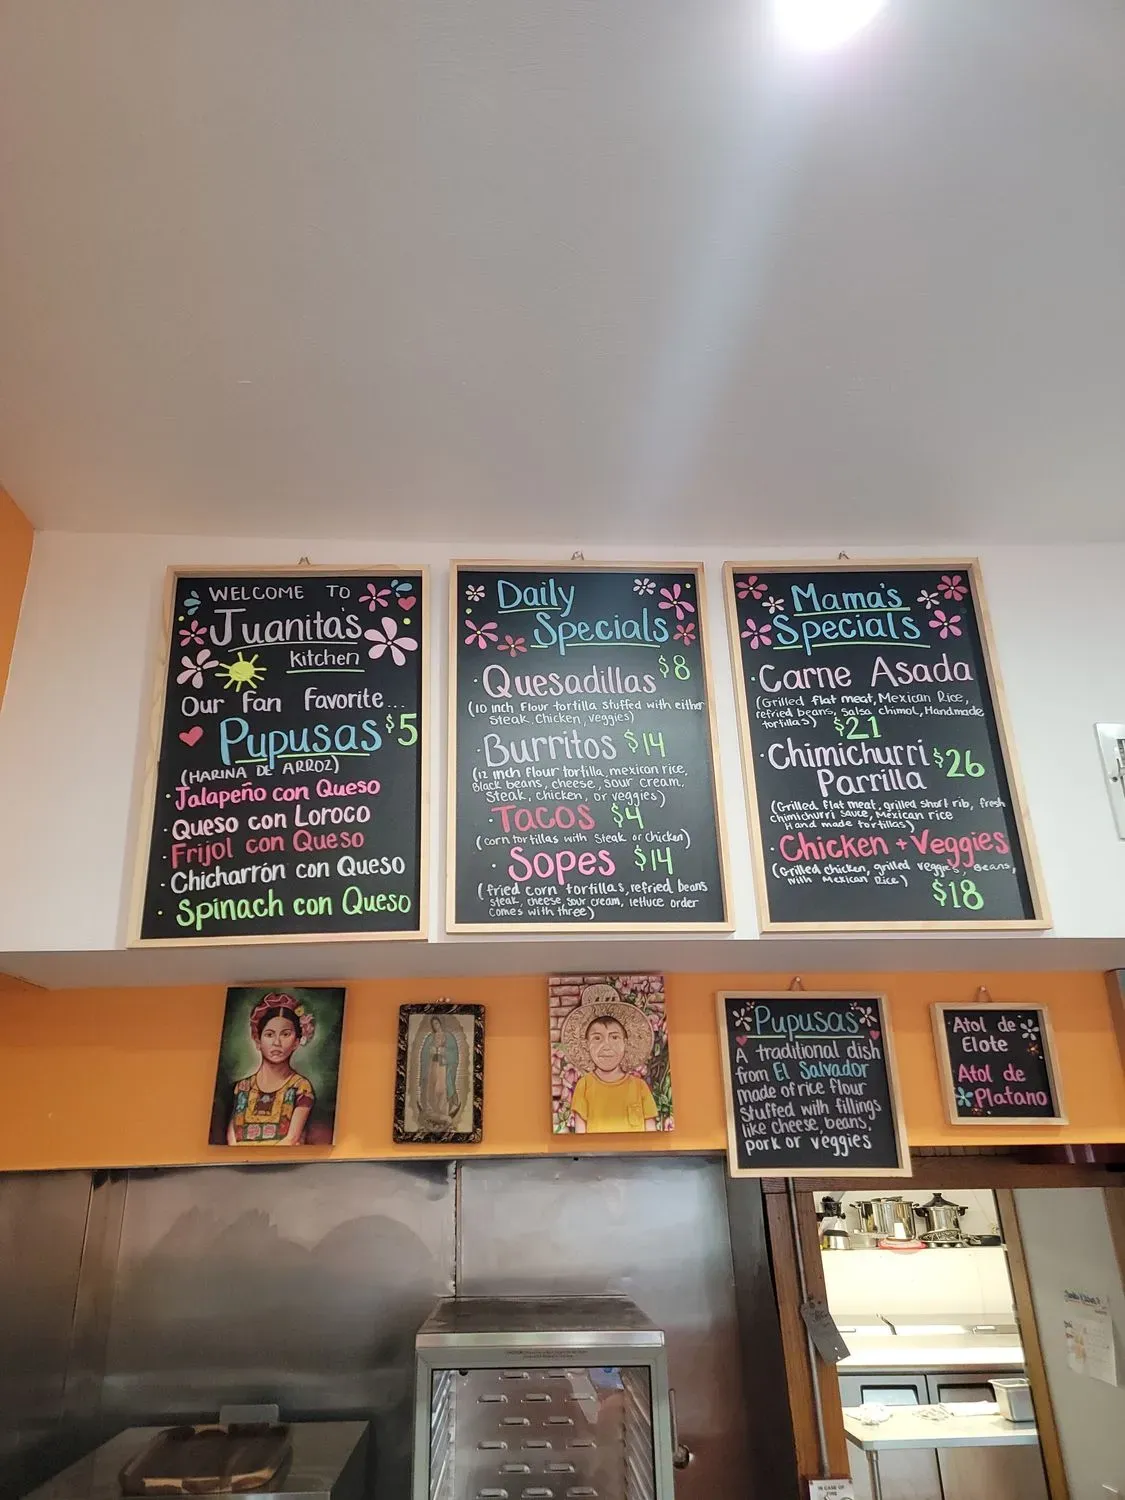 WELCOME TO
Juanita's
Kitchen
Our Fan Favorite...
Pupusas $5
(HARINA DE ARROZ)
· Jalapeño con Queso
· Queso con Loroco
· Frijol con Queso
· Chicharrón con Queso
· Spinach con Queso
Daily
Specials
· Quesadillas $8
(10 inch Flour tortilla stuffed with either
Steak, Chicken, veggies)
· Burritos $14
(12 inch flour tortilla, mexican rice,
Black beans, cheese, sour cream,
Steak, chicken, or veggies)
· Tacos $4
(corn tortillas with Steak or Chicken)
· Sopes $14
(fried corn tortillas, refried beans
steak, cheese, sour cream, lettuce order
comes with three)
Mama's
Specials
· Carne Asada
(Grilled flat meat, Mexican Rice,
refried beans, Salsa chimol, Handmade
tortillas) $21
· Chimichurri $26
Parrilla
(Grilled flat meat, grilled short rib, fresh
chimichurri sauce, Mexican rice
Hand made tortillas)
· Chicken + Veggies
(Grilled chicken, grilled veggies, Beans,
with Mexican Rice)
$18
Pupusas
A traditional dish
from El Salvador
made of rice flour
Stuffed with fillings
like cheese, beans,
pork or veggies
· Atol de
Elote
· Atol de
Platano
IN CASE OF
FIRE